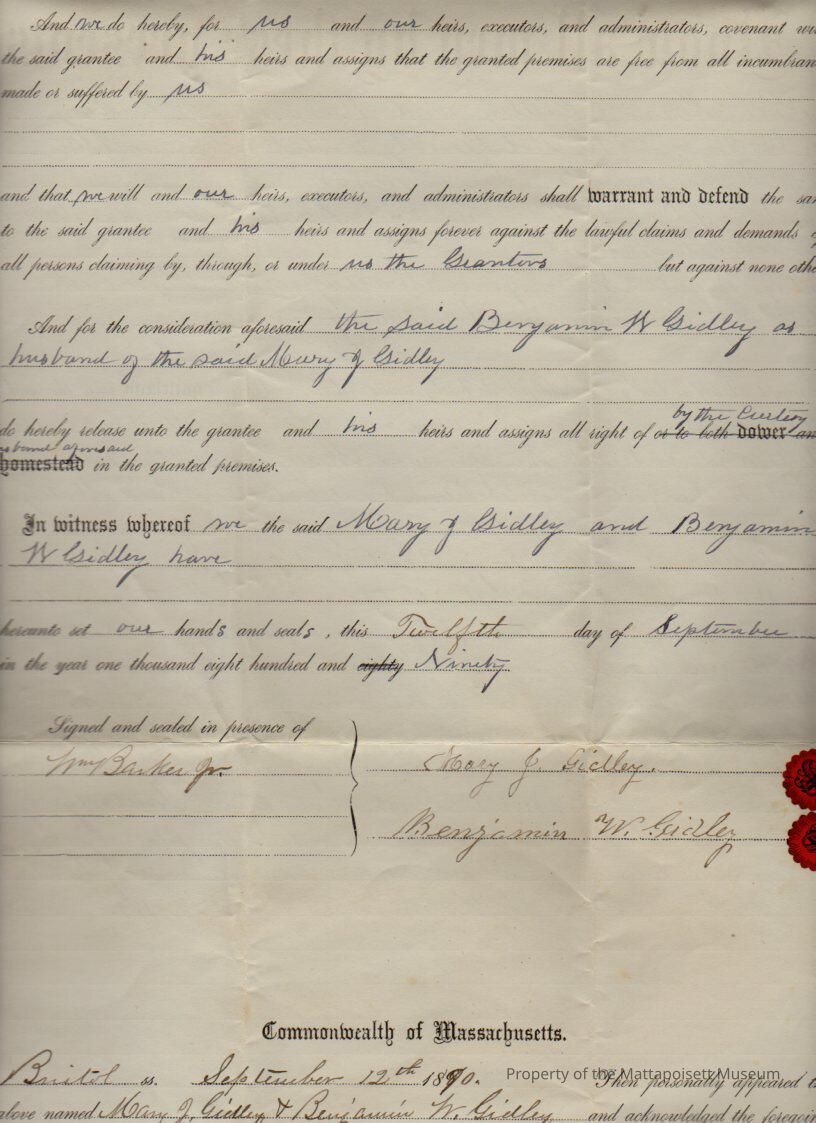 And we do hereby, for us and our heirs, executors, and administrators, covenant
the said grantee and his heirs and assigns that the granted premises are free from all incumbran
made or suffered by us
and that we will and our heirs, executors, and administrators shall warrant and defend the sa
to the said grantee and his heirs and assigns forever against the lawful claims and demands
all persons claiming by, through, or under us the Grantors but against none othe
And for the consideration aforesaid the said Benjamin W Gidley as
husband of the said Mary J Gidley
by the Curtesy
do hereby release unto the grantee and his heirs and assigns all right of or to both dower an
sband aforesaid
homestead in the granted premises.
In witness whereof we the said Mary J Gidley and Benjamin
W Gidley have
hereunto set our hands and seals, this Twelfth day of September
in the year one thousand eight hundred and eighty Ninety
Signed and sealed in presence of
Wm Barker Jr. Mary J. Gidley.
Benjamin W. Gidley
Commonwealth of Massachusetts.
Bristol ss. September 12th 1890. Then personally appeared
above named Mary J. Gidley & Benjamin W. Gidley and acknowledged the foregoin
Property of the Mattapoisett Museum